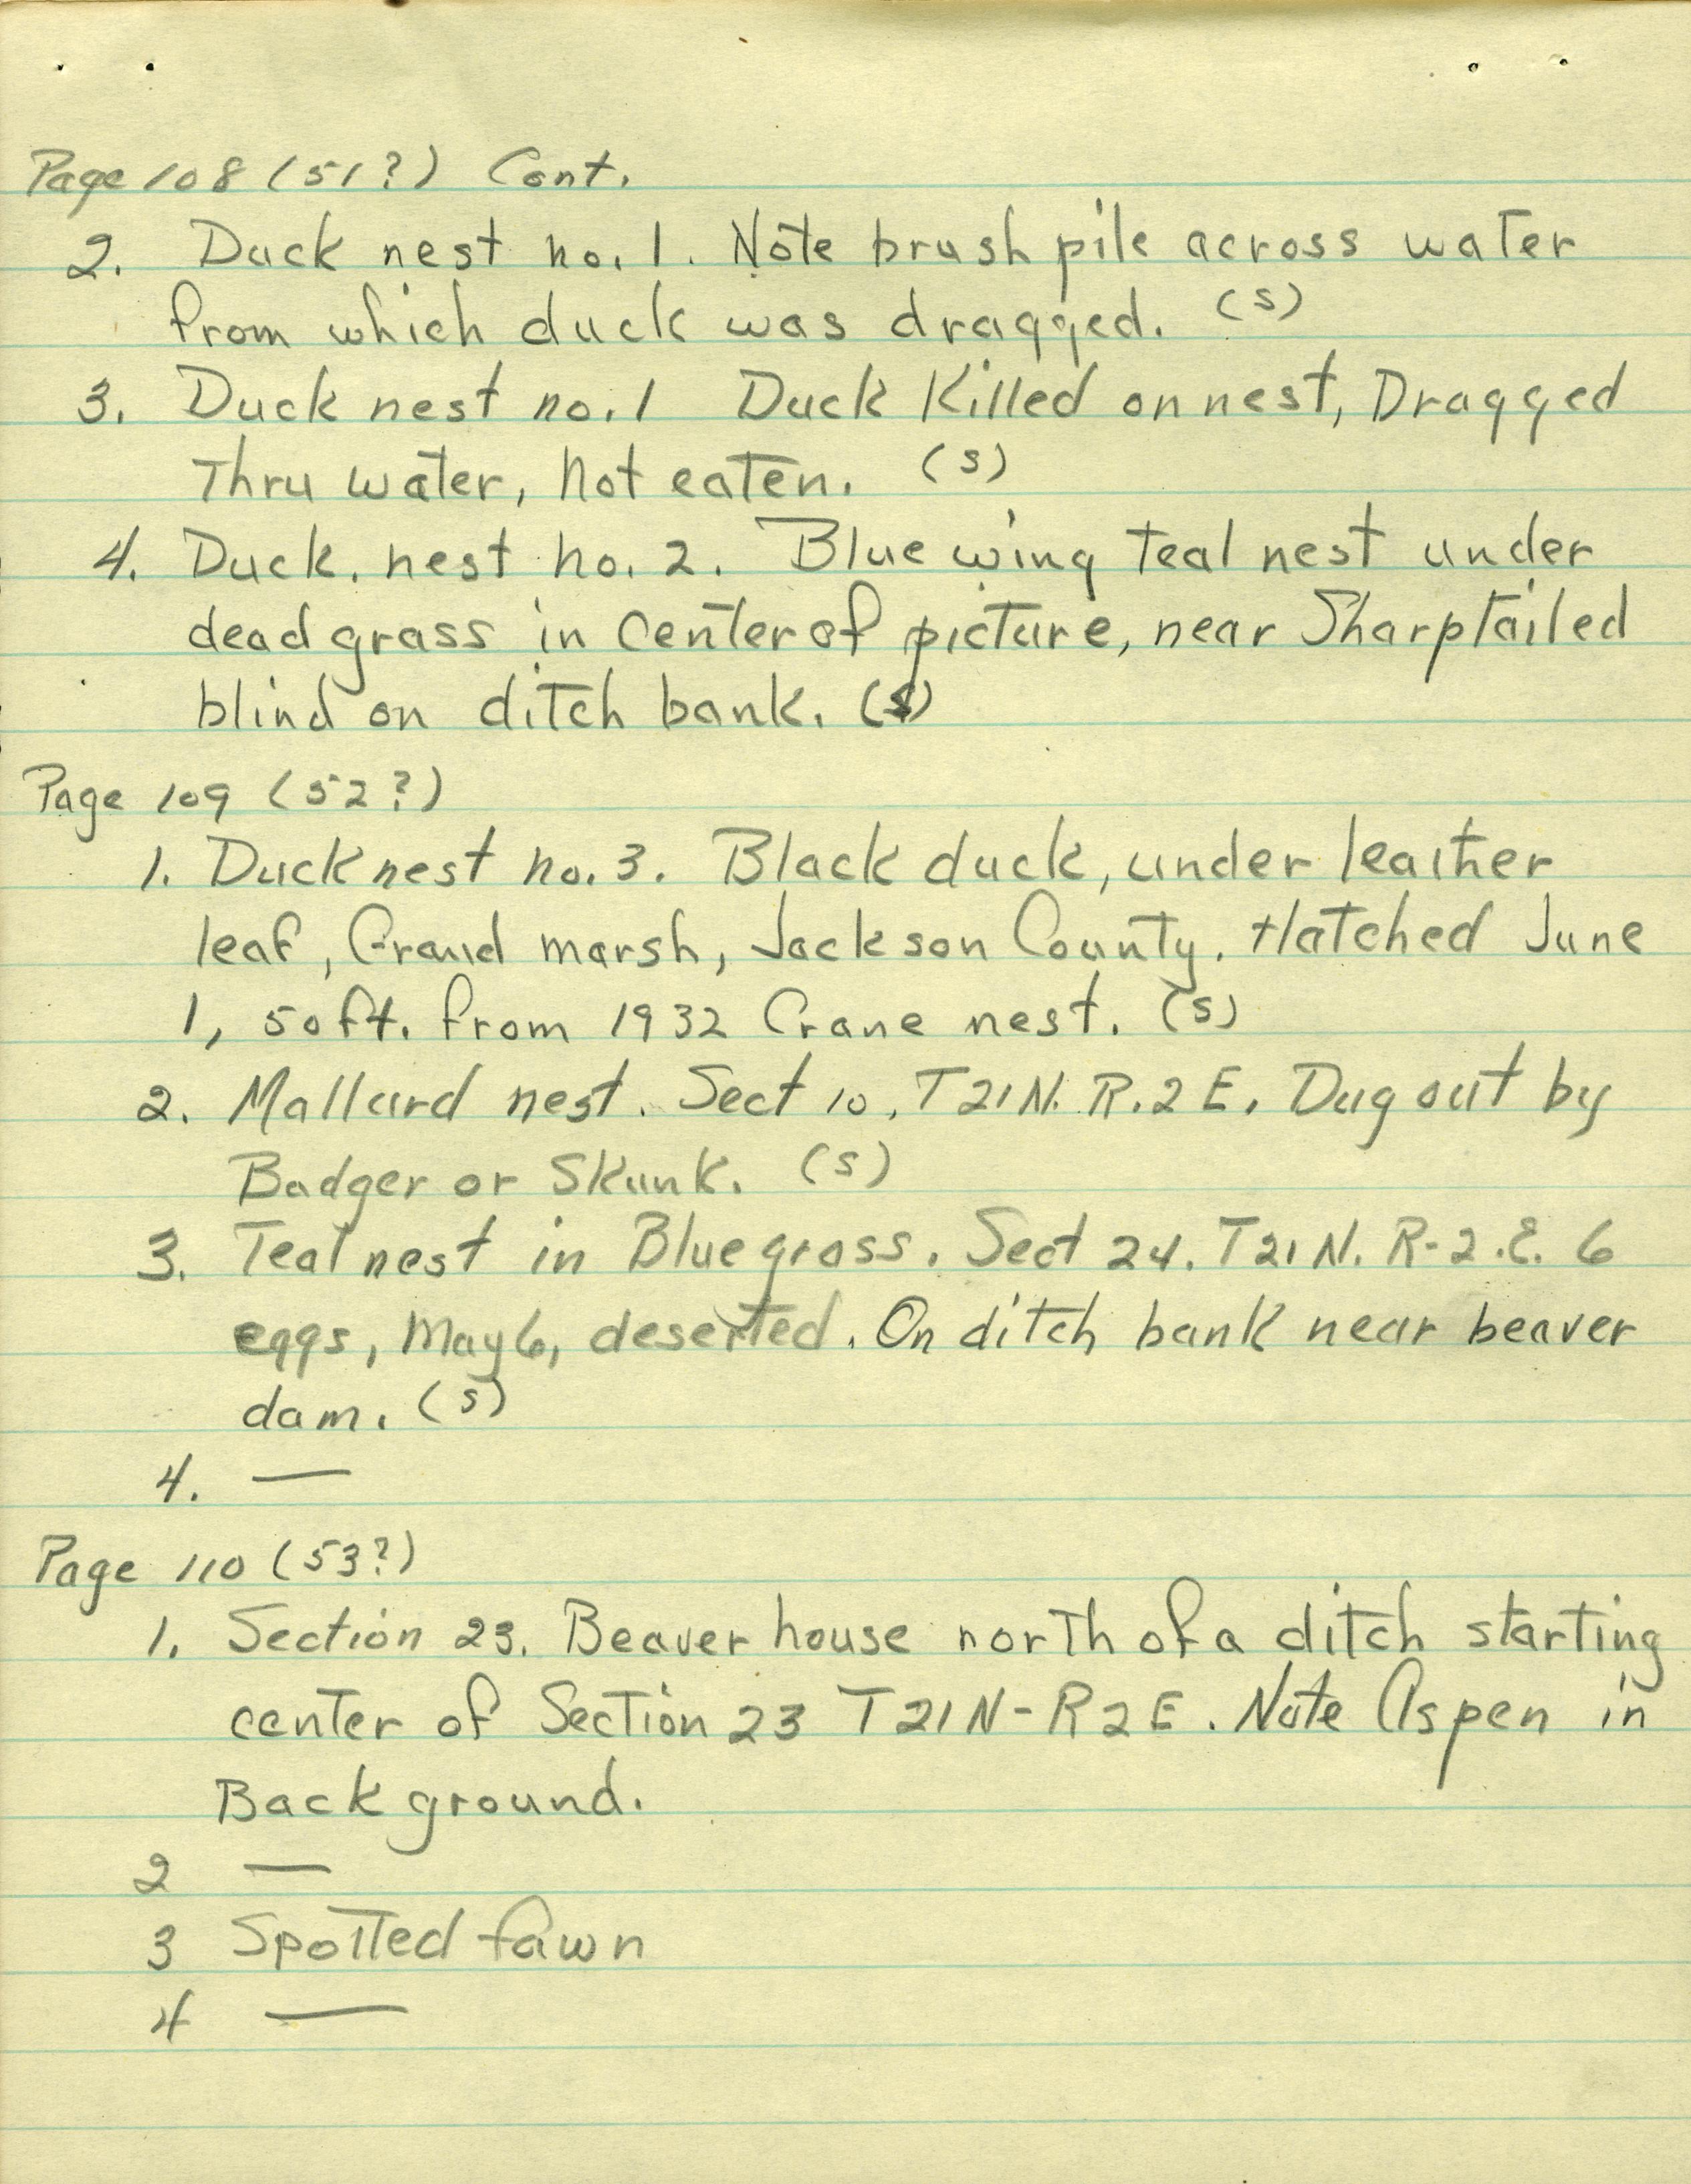 Page 108 (51?) Cont.
2. Duck nest no. 1. Note brush pile across water
from which duck was dragged. (S)
3. Duck nest no. 1 Duck Killed on nest, Dragged
Thru water, Not eaten. (S)
4. Duck. nest no. 2. Blue wing Teal nest under
dead grass in Center of picture, near Sharptailed
blind on ditch bank. (S)
Page 109 (52?)
1. Duck nest no. 3. Black duck, under leather
leaf, Grand marsh, Jackson County. Hatched June
1, 50 ft. from 1932 Crane nest. (S)
2. Mallard nest. Sect 10, T21N. R.2E. Dug out by
Badger or Skunk. (S)
3. Teal nest in Bluegrass. Sect 24. T21N. R-2.E. 6
eggs, May 6, deserted. On ditch bank near beaver
dam. (S)
4. —
Page 110 (53?)
1. Section 23. Beaver house north of a ditch starting
center of Section 23 T21N-R2E. Note Aspen in
Back ground.
2 —
3 Spotted fawn
4 —